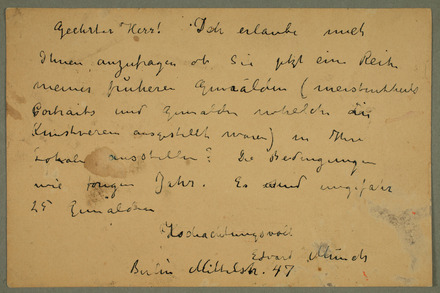 Geehrter Herr! Ich erlaube mich
Ihnen anzufragen ob Sie jetzt eine Reih
meiner früheren Gemälden (meistentheils
Portraits und Gemälden welche in
Kunstverein ausgestellt waren) in Ihre
Lokalen ausstellen? Die Bedingungen
wie vorigen Jahr. Es sind ungefähr
25 Gemälden
Hochachtungsvoll
Edvard Munch
Berlin Mittelstr. 47